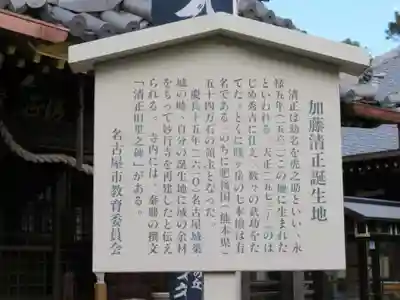 加藤清正誕生地
清正は幼名を虎之助といい、永
禄五年（一五六二）この地に生まれた
といわれる。天正元（一五七三）のは
じめ秀吉に仕え、数々の武功をた
てた。とくに賤ヶ岳の七本槍は有
名である。のちに肥後国（熊本県）
五十四万石の領主となった。
慶長十五年（一六一〇）名古屋城築
城の時、自分の誕生地に城の余材
をもって妙行寺を再建したと伝え
られる。寺内には、秦鼎の撰文
「清正旧里之碑」がある。
名古屋市教育委員会